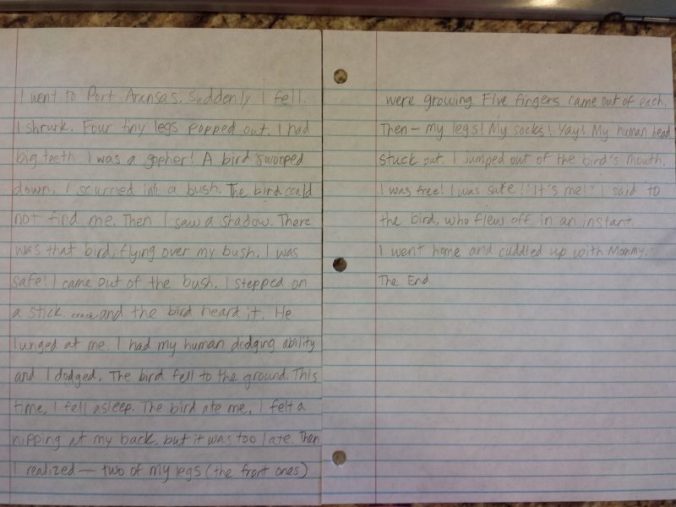 I went to Port Aransas. Suddenly I fell.
I shrunk. Four tiny legs popped out. I had
big teeth. I was a gopher! A bird swooped
down. I scurried into a bush. The bird could
not find me. Then I saw a shadow. There
was that bird, flying over my bush. I was
safe! I came out of the bush. I stepped on
a stick and the bird heard it. He
lunged at me. I had my human dodging ability
and I dodged. The bird fell to the ground. This
time, I fell asleep. The bird ate me. I felt a
nipping at my back, but it was too late. Then
I realized — two of my legs (the front ones)
were growing. Five fingers came out of each.
Then — my legs! My socks! Yay! My human head
stuck out. I jumped out of the bird's mouth.
I was free! I was safe! "It's me!" I said to
the bird, who flew off in an instant.
I went home and cuddled up with Mommy.
The End